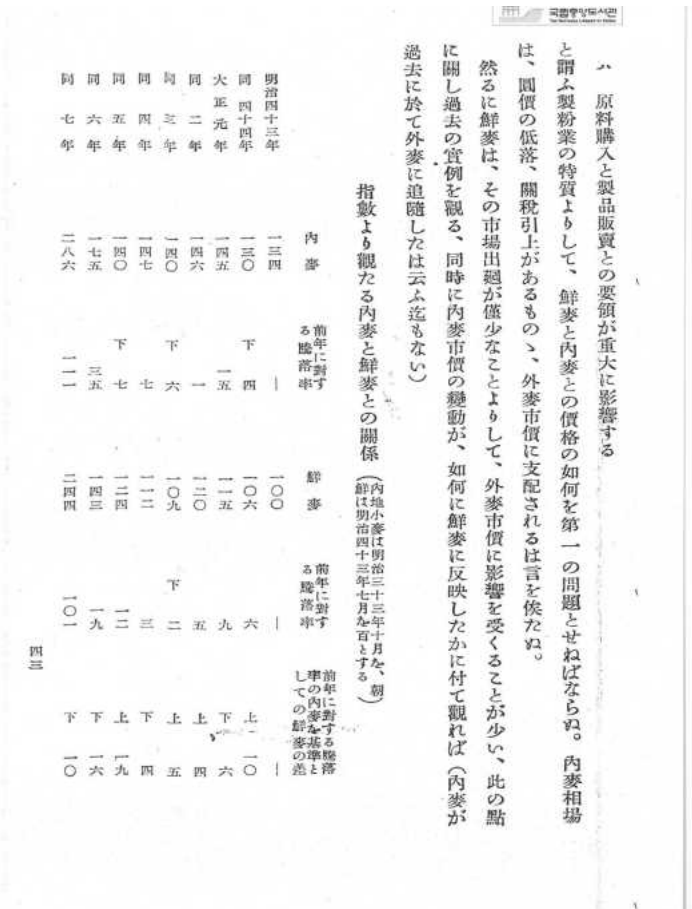 国립중앙도서관
THE NATIONAL LIBRARY OF KOREA
ハ 原料購入と製品販賣との要領が重大に影響する
と謂ふ製粉業の特質よりして、鮮麥と內麥との價格の如何を第一の問題とせねばならぬ。內麥相場
は、圓價の低落、關稅引上があるものゝ、外麥市價に支配されるは言を俟たぬ。
然るに鮮麥は、その市場出廻が僅少なことよりして、外麥市價に影響を受くることが少い、此の點
に關し過去の實例を觀る、同時に內麥市價の變動が、如何に鮮麥に反映したかに付て觀れば（內麥が
過去に於て外麥に追隨したは云ふ迄もない）
指數より觀たる內麥と鮮麥との關係（內地小麥は明治三十三年十月を、朝鮮は明治四十三年七月を百とする）
內麥 前年に對する騰落率 鮮麥 前年に對する騰落率 前年に對する騰落率の內麥を基準としての鮮麥の差
明治四十三年 一三四 ― 一〇〇 ― ―
同 四十四年 一三〇 下 四 一〇六 六 上 一〇
大正元年 一四五 一五 一一五 九 下 六
同 二年 一四六 一 一二〇 五 上 四
同 三年 一四〇 下 六 一〇九 下 二 上 五
同 四年 一四七 七 一一二 三 下 四
同 五年 一四〇 下 七 一二四 一二 上 一九
同 六年 一七五 三五 一四三 一九 下 一六
同 七年 二八六 一一一 二四四 一〇一 下 一〇
四三